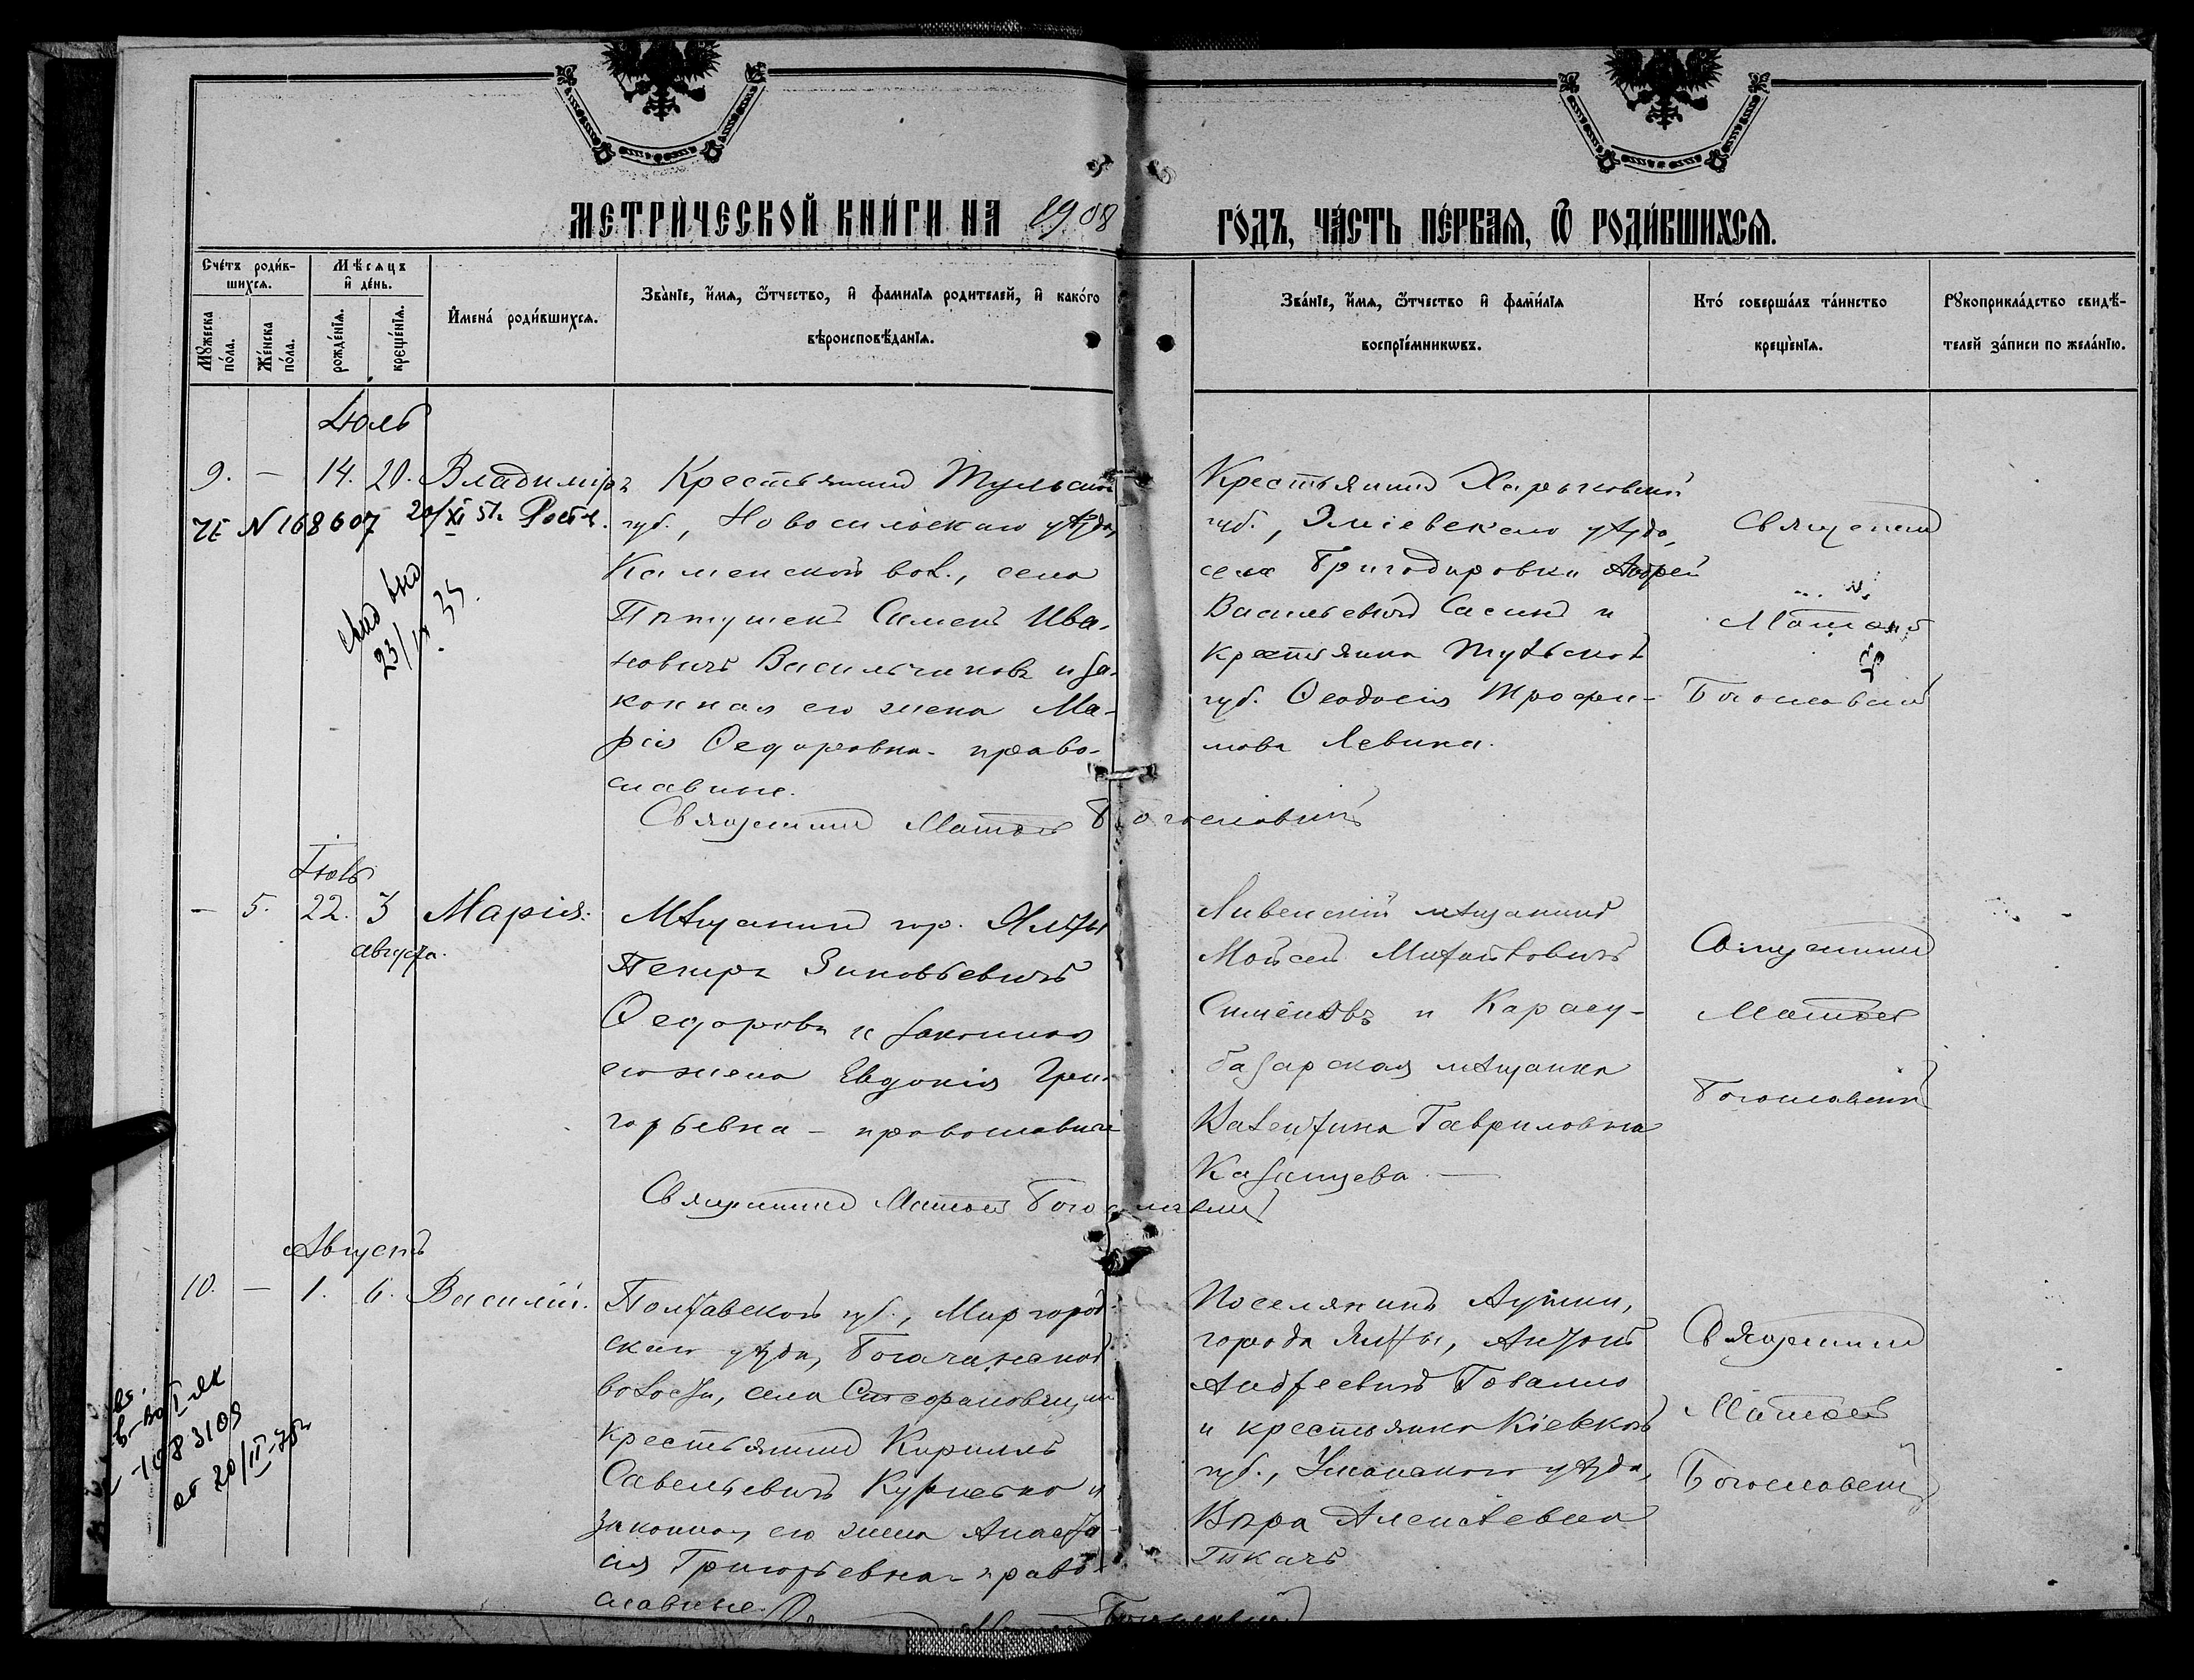 МЕТРИ́ЧЕСКОЙ КНИ́ГИ НА 1908
ГО́ДЪ, ЧА́СТЬ ПЕ́РВАѦ, Ѽ РОДИ́ВШИХСѦ.
Сче́тъ роди́в-
шихсѧ.
Мѣсѧцъ
и҆ де́нь.
Мꙋжеска
по́ла.
Же́нска
по́ла.
рожде́нїѧ.
креще́нїѧ.
И҆мена́ роди́вшихсѧ.
Зва́нїе, и҆́мѧ, ѻ҆́тчество, и҆ фамилїѧ родителей, и҆ како́гѡ
вѣроисповѣ́данїѧ.
Зва́нїе, и҆́мѧ, ѻ҆́тчество и҆ фами́лїѧ
воспрїе́мникѡвъ.
Кто́ соверша́лъ та́инство
креще́нїѧ.
Рꙋкоприкла́дство свидѣ́-
телей за́писи по жела́нїю.
Іюль
9. — 14. 20. Владиміръ
ЧЕ N 168607 20/XI 51г. Рост.
23/
Крестьянинъ Тульской
губ., Новосильскаго уѣзда,
Каменской вол., села
Пѣтушекъ Симеонъ Ива-
новичъ Васильчиковъ и за-
конная его жена Ма-
рія Ѳедоровна - право-
славные.
Священникъ Матѳей Богословскій
Крестьянинъ Харьковской
губ., Зміевскаго уѣзда,
села Пригодировки Андрей
Васильевичъ Сасинъ и
крестьянка Тульской
губ. Ѳеодосія Трофи-
мова Левина.
Священникъ
Матѳей
Богословскій
Іюль
— 5. 22. 3 Марія.
августа.
Мѣщанинъ гор. Ялты
Петръ Зиновьевичъ
Ѳедоровъ и законная
его жена Евдокія Гри-
горьевна - православные
Священникъ Матѳей Богословскій
Ливенскій мѣщанинъ
Мойсей Михайловичъ
Симёновъ и Карасу-
базарская мѣщанка
Валентина Гавриловна
Казанцева —
Священникъ
Матѳей
Богословскій
Августъ
10. — 1. 6. Василій.
1083109
от 20/II-78г
Полтавской губ., Миргород-
скаго уѣзда, Богачанской
волости, села
крестьянинъ Кириллъ
Савельевичъ Курченко и
законная его жена Анаста-
сія Григорьевна - право-
славные.
Богословскій
Поселянинъ Аутки,
города Ялты, Антонъ
Андреевичъ
и крестьянка Кіевской
губ., Уманскаго уѣзда,
Вѣра Алексѣевна
Ткачъ
Священникъ
Матѳей
Богословскій